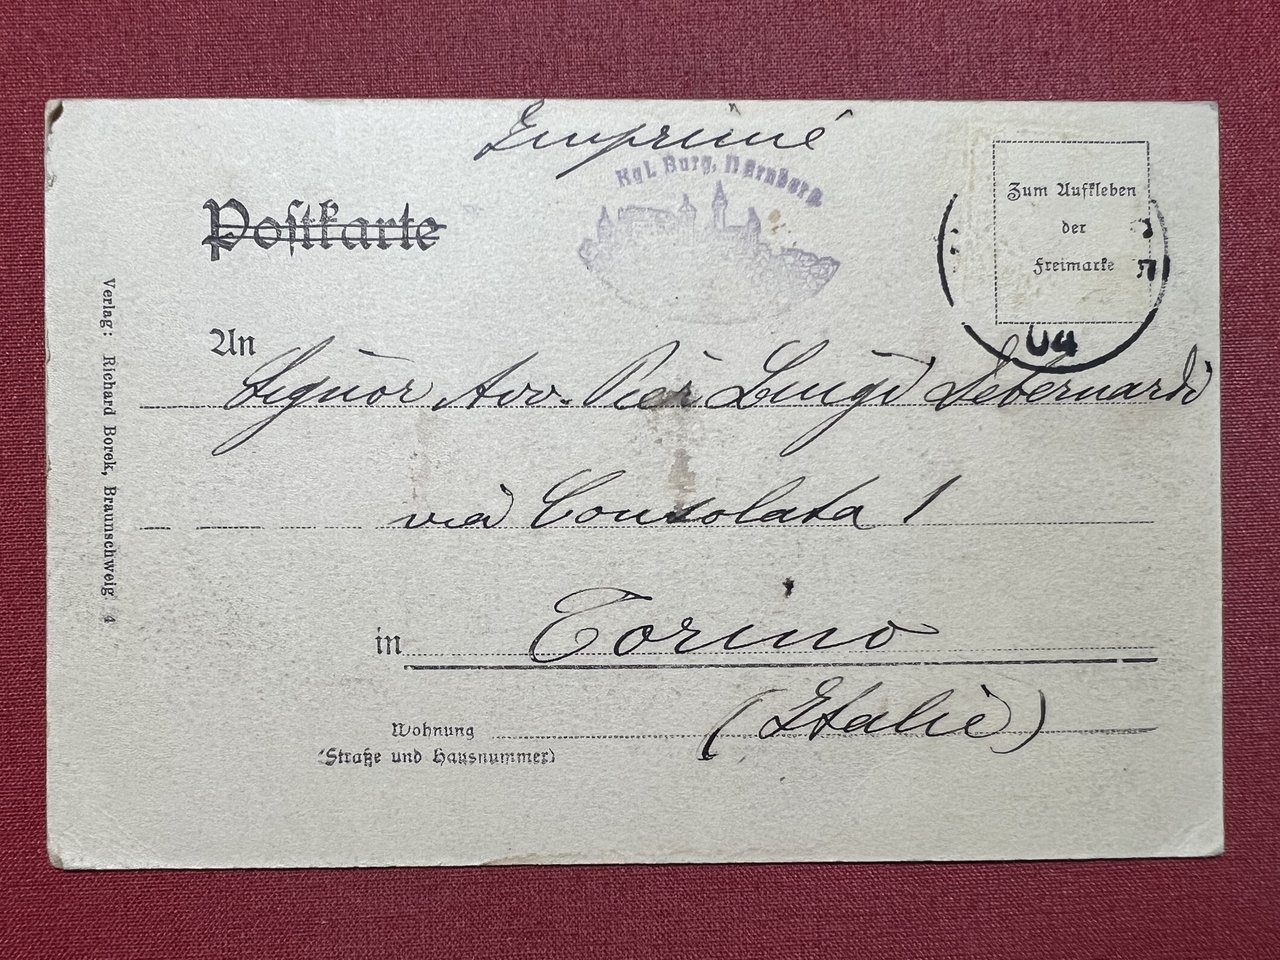 Imprimé
Kgl. Burg, Nürnberg
Postkarte
Zum Aufkleben
der
Freimarke
04
An Signor Avv. Pier Luigi
via Consolata 1
in Torino
(Italie)
Wohnung
(Straße und Hausnummer)
Verlag: Richard Borek, Braunschweig 4